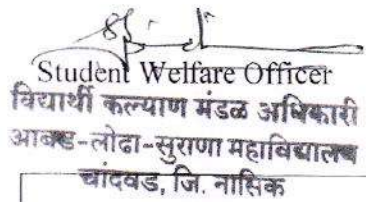 Student Welfare Officer
विद्यार्थी कल्याण मंडळ अधिकारी
आबड-लोढा-सुराणा महाविद्यालय
चांदवड, जि. नासिक